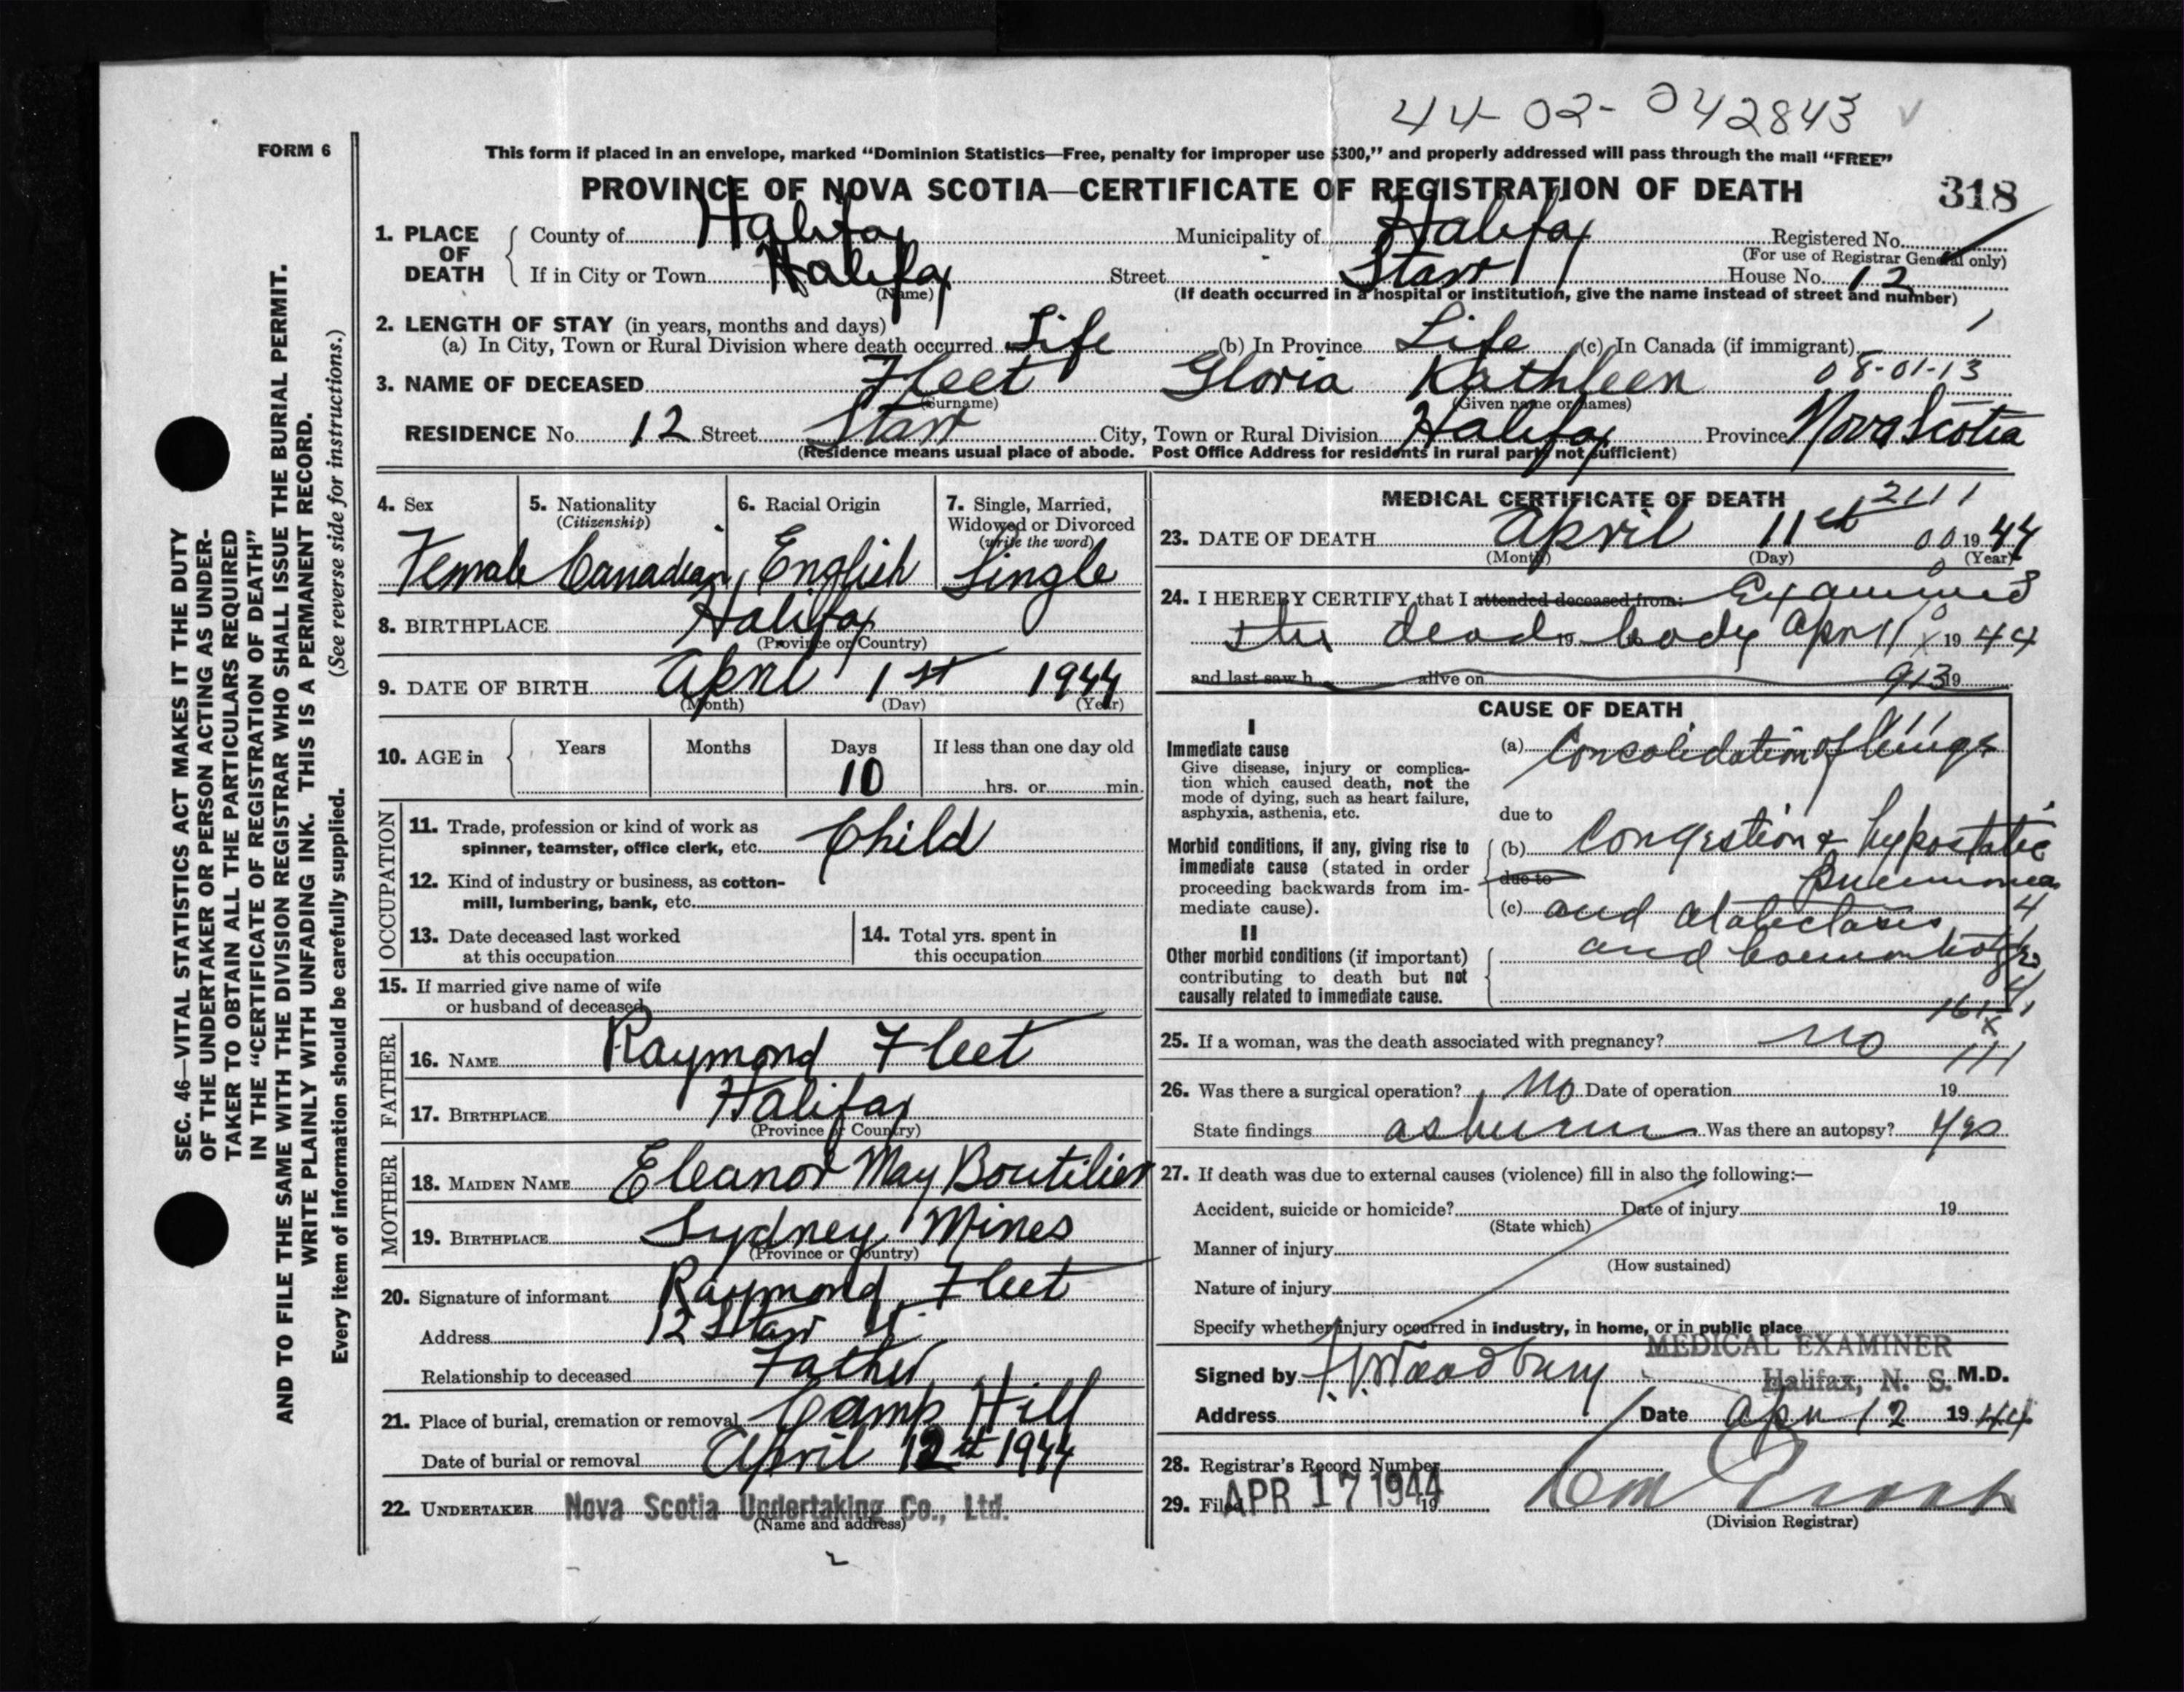 44-02-042843
FORM 6
This form if placed in an envelope, marked "Dominion Statistics—Free, penalty for improper use $300," and properly addressed will pass through the mail "FREE"
PROVINCE OF NOVA SCOTIA—CERTIFICATE OF REGISTRATION OF DEATH
318
1. PLACE OF DEATH
County of Halifax Municipality of Halifax Registered No.
(For use of Registrar General only)
If in City or Town Halifax Street Starr House No. 12
(Name) (If death occurred in a hospital or institution, give the name instead of street and number)
2. LENGTH OF STAY (in years, months and days)
(a) In City, Town or Rural Division where death occurred Life (b) In Province Life (c) In Canada (if immigrant)
3. NAME OF DECEASED Fleet Gloria Kathleen 08-01-13
(Surname) (Given name or names)
RESIDENCE No. 12 Street Starr City, Town or Rural Division Halifax Province Nova Scotia
(Residence means usual place of abode. Post Office Address for residents in rural parts not sufficient)
SEC. 46—VITAL STATISTICS ACT MAKES IT THE DUTY
OF THE UNDERTAKER OR PERSON ACTING AS UNDER-
TAKER TO OBTAIN ALL THE PARTICULARS REQUIRED
IN THE "CERTIFICATE OF REGISTRATION OF DEATH"
AND TO FILE THE SAME WITH THE DIVISION REGISTRAR WHO SHALL ISSUE THE BURIAL PERMIT.
WRITE PLAINLY WITH UNFADING INK. THIS IS A PERMANENT RECORD.
Every item of information should be carefully supplied. (See reverse side for instructions.)
4. Sex
Female
5. Nationality
(Citizenship)
Canadian
6. Racial Origin
English
7. Single, Married,
Widowed or Divorced
(write the word)
Single
8. BIRTHPLACE Halifax
(Province or Country)
9. DATE OF BIRTH April 1st 1944
(Month) (Day) (Year)
10. AGE in Years Months Days If less than one day old
10 hrs. or min.
OCCUPATION
11. Trade, profession or kind of work as
spinner, teamster, office clerk, etc. Child
12. Kind of industry or business, as cotton-
mill, lumbering, bank, etc.
13. Date deceased last worked
at this occupation
14. Total yrs. spent in
this occupation
15. If married give name of wife
or husband of deceased
FATHER
16. NAME Raymond Fleet
17. BIRTHPLACE Halifax
(Province or Country)
MOTHER
18. MAIDEN NAME Eleanor May Boutilier
19. BIRTHPLACE Sydney Mines
(Province or Country)
20. Signature of informant Raymond Fleet
Address 12 Starr St.
Relationship to deceased Father
21. Place of burial, cremation or removal Camp Hill
Date of burial or removal April 12st 1944
22. UNDERTAKER Nova Scotia Undertaking Co., Ltd.
(Name and address)
MEDICAL CERTIFICATE OF DEATH
2111
23. DATE OF DEATH April 11st 00 1944
(Month) (Day) (Year)
24. I HEREBY CERTIFY that I attended deceased from: Examined
the dead 19 body Apr 11 1944
and last saw h alive on 19
913
CAUSE OF DEATH
I
Immediate cause
Give disease, injury or complica-
tion which caused death, not the
mode of dying, such as heart failure,
asphyxia, asthenia, etc.
(a) Consolidation of lungs
due to
Morbid conditions, if any, giving rise to
immediate cause (stated in order
proceeding backwards from im-
mediate cause).
(b) Congestion & hypostatic
due to pneumonia
(c) and atalectasis
II
Other morbid conditions (if important)
contributing to death but not
causally related to immediate cause.
and
25. If a woman, was the death associated with pregnancy? no
26. Was there a surgical operation? No Date of operation 19
State findings Was there an autopsy? Yes
27. If death was due to external causes (violence) fill in also the following:—
Accident, suicide or homicide? Date of injury 19
(State which)
Manner of injury
(How sustained)
Nature of injury
Specify whether injury occurred in industry, in home, or in public place
MEDICAL EXAMINER
Signed by Woodbury Halifax, N. S. M.D.
Address Date Apr 12 1944
28. Registrar's Record Number
29. Filed APR 17 1944 19
(Division Registrar)